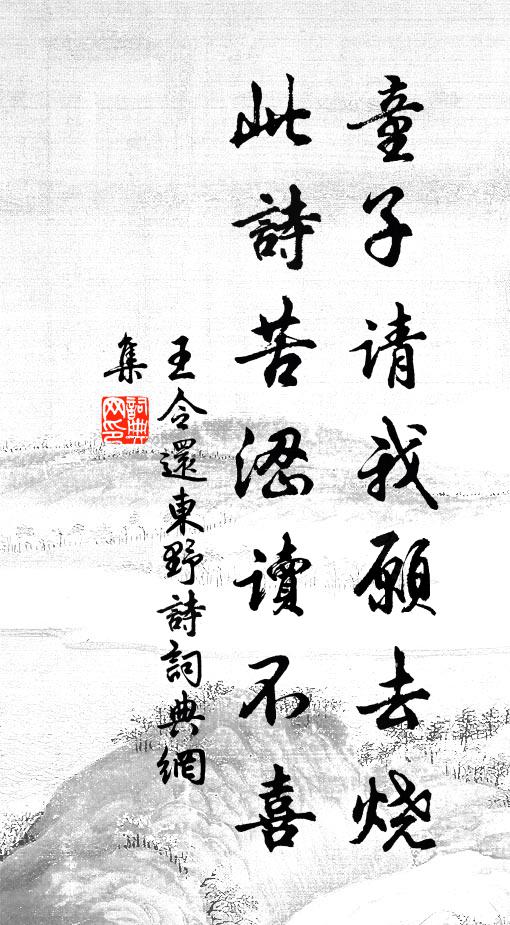 童子请我願去烧
此詩苦澀读不喜
王令還東野詩詞典網
集
詞典网印